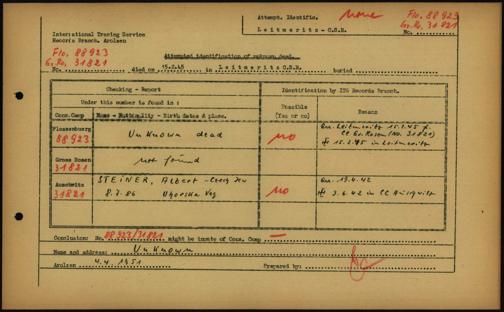 Attempt. Identific. None Flo. 88923
Leitmeritz - C.S.R. Gr. Ro. 31821
No.
International Tracing Service
Records Branch, Arolsen
Flo. 88923
G. Ro. 31821
Attempted identification of unknown dead.
No. died on 15.2.45 in Leitmeritz C.S.R. buried
Checking - Report
Identification by ITS Records Branch.
Under this number is found in :
Possible
(Yes or no)
Reason
Conc.Camp Name - Nationality - Birth dates & place.
Flossenbuerg
88923
Unknown dead
no
15.1.45
CC Gr. Rosen (No. 31821)
15.2.45 in Leitmeritz
Gross Rosen
31821
not found
Auschwitz
31821
STEINER, Albert - Czech Jew
8.7.86 Uhorska Ves
no
19.4.42
3.6.42 in CC Auschwitz
Conclusion: No. 88923/31821 might be inmate of Conc. Camp —
Name and address: Unknown
Arolsen 4.4.1951 Prepared by: